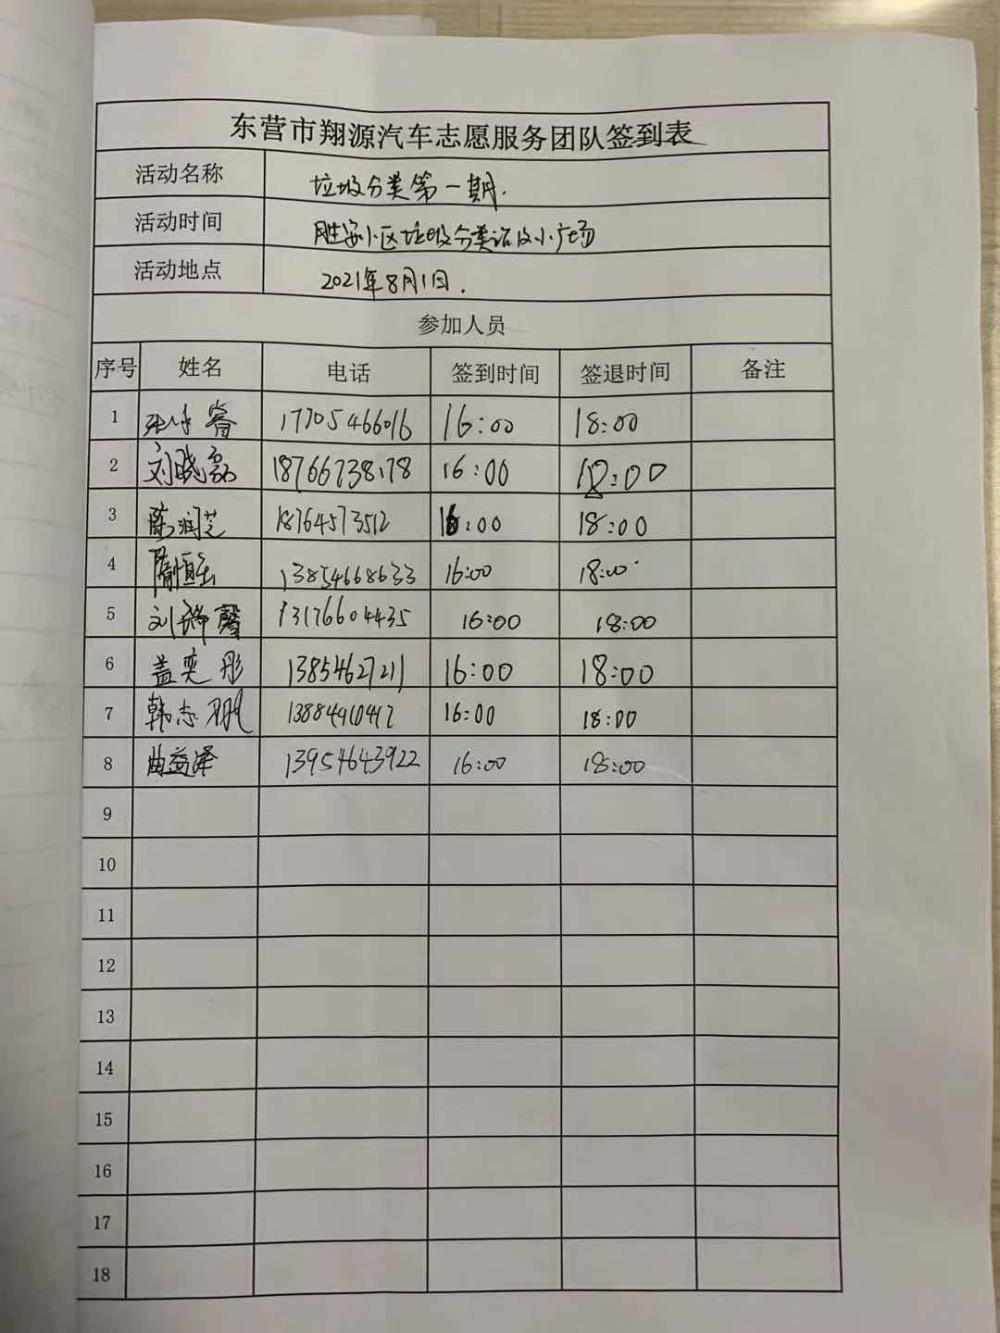 东营市翔源汽车志愿服务团队签到表
活动名称 垃圾分类第一期.
活动时间 胜安小区垃圾分类站及小广场
活动地点 2021年8月1日.
参加人员
序号 姓名 电话 签到时间 签退时间 备注
1 睿 17705466016 16:00 18:00
2 刘晓磊 18766738178 16:00 18:00
3 陈润芝 18764573512 16:00 18:00
4 隋恒 13854668633 16:00 18:00
5 刘馨 13176604435 16:00 18:00
6 盖奕彤 13854627211 16:00 18:00
7 韩志 13884910412 16:00 18:00
8 曲益泽 13954643922 16:00 18:00
9
10
11
12
13
14
15
16
17
18